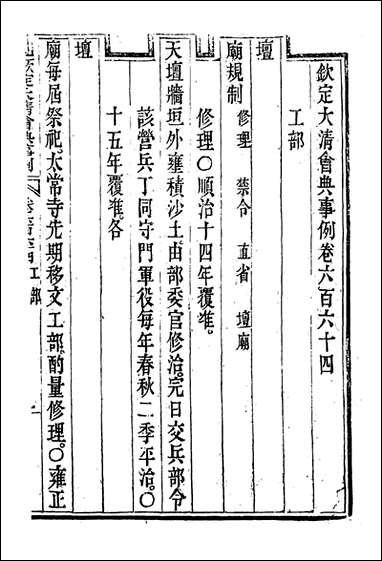 欽定大清會典事例卷六百六十四
工部
壇
廟規制 修理 禁令 直省 壇廟
修理○順治十四年覆準。
天壇牆垣外壅積沙土。由部委官修治。完日交兵部令
該營兵丁同守門軍役。每年春秋二季平治。○
十五年覆準。各
壇
廟每屆祭祀。太常寺先期移文工部。酌量修理。○雍正